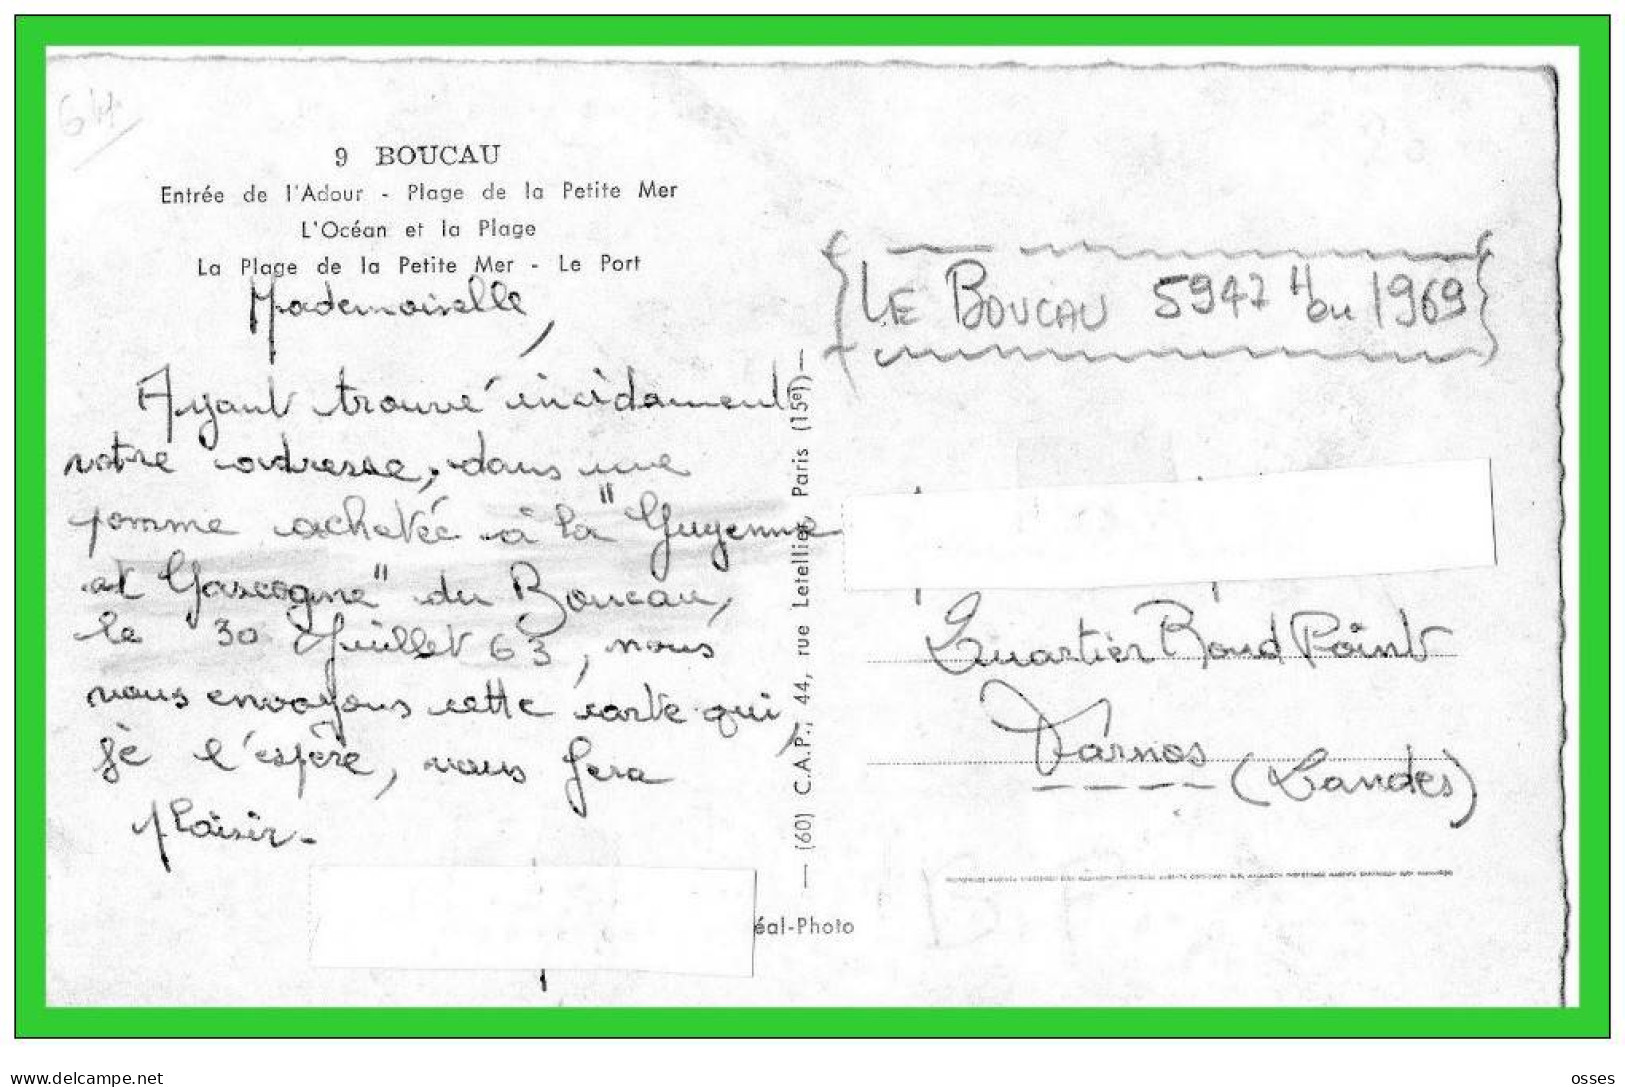 64
9 BOUCAU
Entrée de l'Adour - Plage de la Petite Mer
L'Océan et la Plage
La Plage de la Petite Mer - Le Port
Mademoiselle,
Ayant trouvé incidament
votre adresse, dans une
pomme achetée à la "Guyenne
et Gascogne" du Boucau,
le 30 Juillet 63, nous
vous envoyons cette carte qui,
je l'espère, vous fera
plaisir.
— (60) C.A.P., 44, rue Letellier, Paris (15e) —
éal-Photo
LE BOUCAU 5947 Hbu 1969
Quartier Rond Point
Tarnos
(Landes)
www.delcampe.net
osses